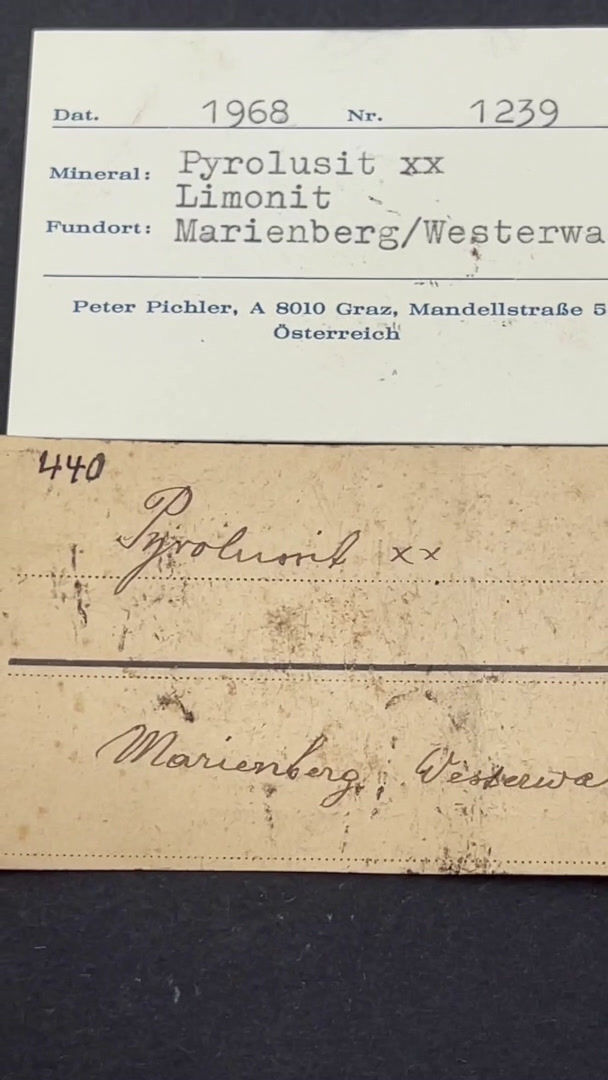 Dat. 1968 Nr. 1239
Mineral: Pyrolusit xx
Limonit
Fundort: Marienberg/Westerwa
Peter Pichler, A 8010 Graz, Mandellstraße 5
Österreich
440
Pyrolusit xx
Marienberg, Westerwa